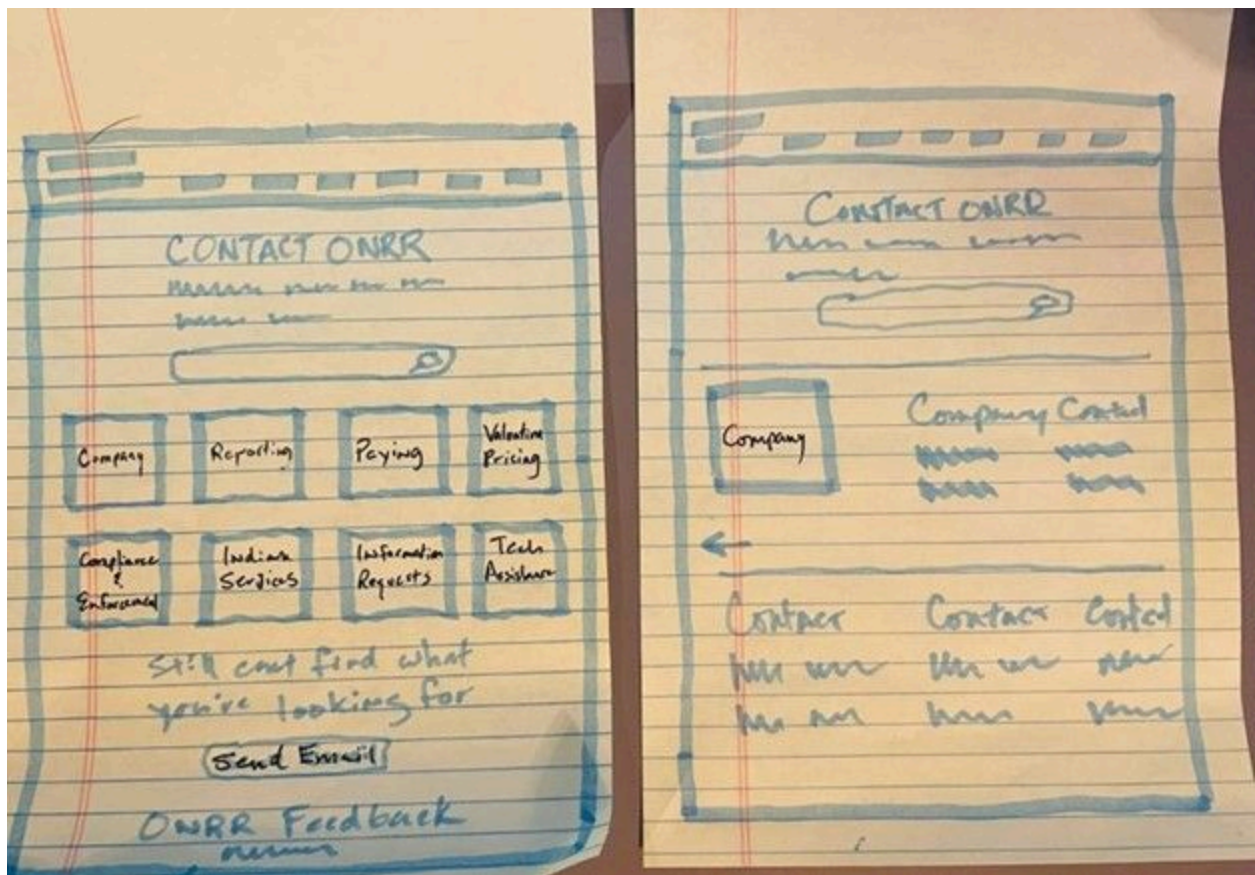 CONTACT ONRR
Company
Reporting
Paying
Valuation
Pricing
Compliance
&
Enforcement
Indian
Services
Information
Requests
Tech
Assistance
Still cant find what
you're looking for
Send Email
ONRR Feedback
CONTACT ONRR
Company
Company Contact
Contact Contact Contact